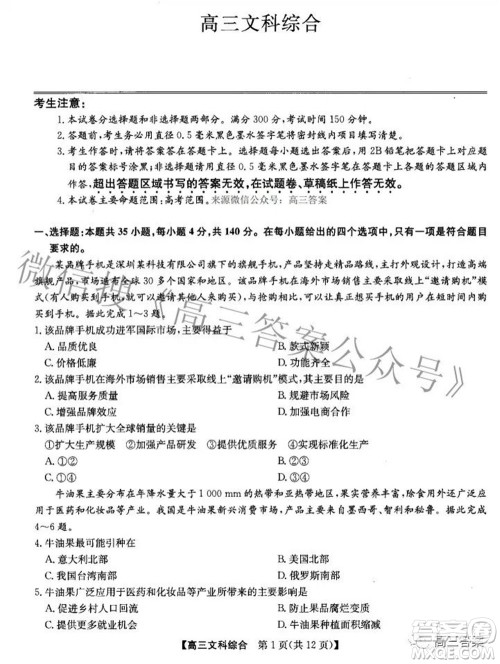 高三文科综合
考生注意:
1. 本试卷分选择题和非选择题两部分。满分 300 分,考试时间 150 分钟。
2. 答题前,考生务必用直径 0.5 毫米黑色墨水签字笔将密封线内项目填写清楚。
3. 考生作答时,请将答案答在答题卡上。选择题每小题选出答案后,用 2B 铅笔把答题卡上对应题
目的答案标号涂黑;非选择题请用直径 0.5 毫米黑色墨水签字笔在答题卡上各题的答题区域内
作答,超出答题区域书写的答案无效,在试题卷、草稿纸上作答无效。
4. 本试卷主要命题范围:高考范围。 来源微信公众号:高三答案
一、选择题:本题共 35 小题,每小题 4 分,共 140 分。在每小题给出的四个选项中,只有一项是符合题目
要求的。
某品牌手机是深圳某科技有限公司旗下的旗舰手机,产品坚持走精品路线,主打外观设计,打造高端
旗舰产品,市场遍布全球 30 多个国家和地区。该品牌手机在海外市场销售主要采取线上“邀请购机”模
式,即互联网用户可以参与购买,也可以邀请其他人来购买),可以使真正想要购买手机的用户在短时间内购
买到手机。据此完成 1～3 题。
1. 该品牌手机成功进军国际市场,主要得益于
A. 品质优良
B. 款式新颖
C. 价格低廉
D. 功能完善
2. 该品牌手机在海外市场销售主要采取线上“邀请购机”模式,其主要目的是
A. 提高服务质量
B. 规避库存风险
C. 扩大消费群体
D. 加强售后服务
3. 该品牌手机扩大全球销量的关键是
①扩大生产规模 ②加强产品研发 ③加强宣传推广 ④加强售后服务
A. ①②
B. ②③
C. ③④
D. ①④
牛油果主要分布在年降水量大于 1 000 mm 的热带和亚热带地区,其营养价值很高,在欧美还广泛应
用于医药和化妆品等行业。我国是牛油果新兴消费市场,产品主要来自墨西哥、智利和秘鲁。据此完成
4～6 题。
4. 牛油果最可能引种在
A. 意大利北部
B. 俄罗斯南部
C. 我国台湾南部
D. 俄罗斯南部
5. 牛油果广泛应用于医药和化妆品等产业所带来的主要影响是
A. 促进乡村劳动力回流
B. 防止产品腐烂变质
C. 延长产业链
D. 种植面积缩减
【高三文科综合 第 1 页(共 12 页)】
微信搜《高三答案公众号》
高三答案